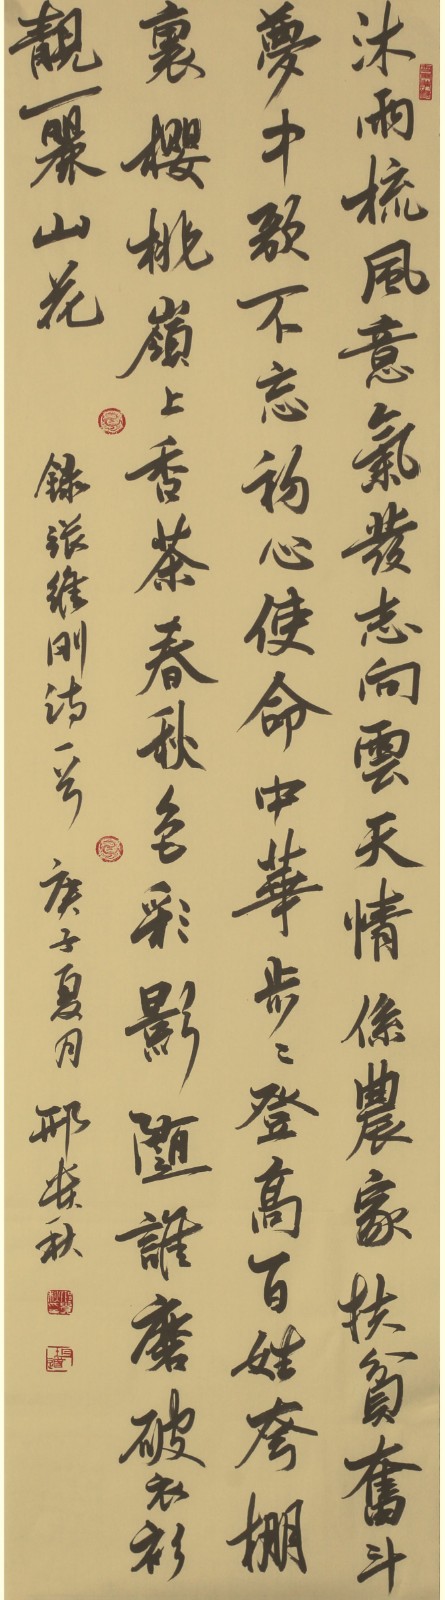 沐雨梳風意氣發志向雲天情係農家扶貧奮斗
夢中歌不忘初心使命中華步々登高百姓夸棚
裏櫻桃嶺上香茶春秋色彩影隨誰磨破衣衫
靚麗山花
録張維剛詩一首 庚子夏月 邢秋